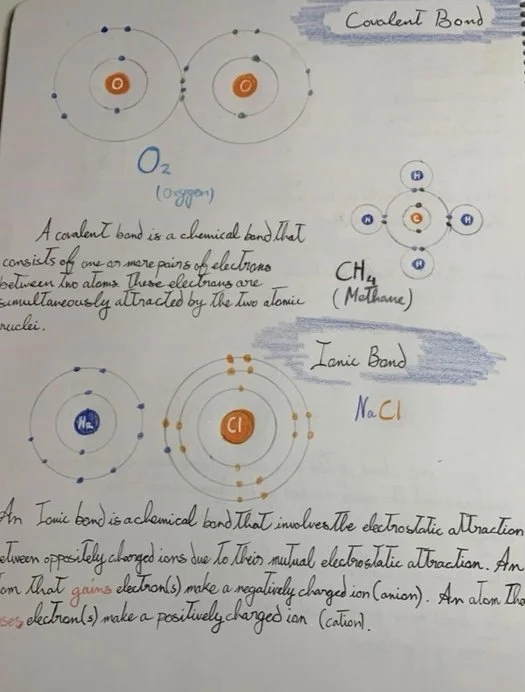 Covalent Bond
O
O
O2
(Oxygen)
H
H
C
H
H
CH4
(Methane)
A covalent bond is a chemical bond that
consists of one or more pairs of electrons
between two atoms. These electrons are
simultaneously attracted by the two atomic
nuclei.
Ionic Bond
NaCl
Na
Cl
An Ionic bond is a chemical bond that involves the electrostatic attraction
etween oppositely charged ions due to their mutual electrostatic attraction. An
om that gains electron(s) make a negatively charged ion (anion). An atom tha
ses electron(s) make a positively charged ion (cation).